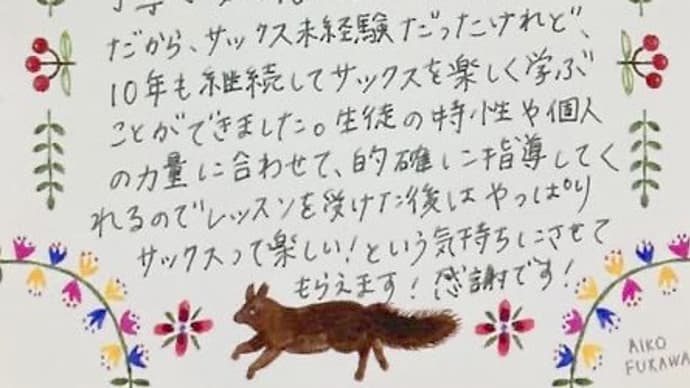 だから、サックス未経験だったけれど、
10年も継続してサックスを楽しく学ぶ
ことができました。生徒の特性や個人
の力量に合わせて、的確に指導してく
れるのでレッスンを受けた後はやっぱり
サックスって楽しい！という気持ちにさせて
もらえます！感謝です！
AIKO
FUKAWA